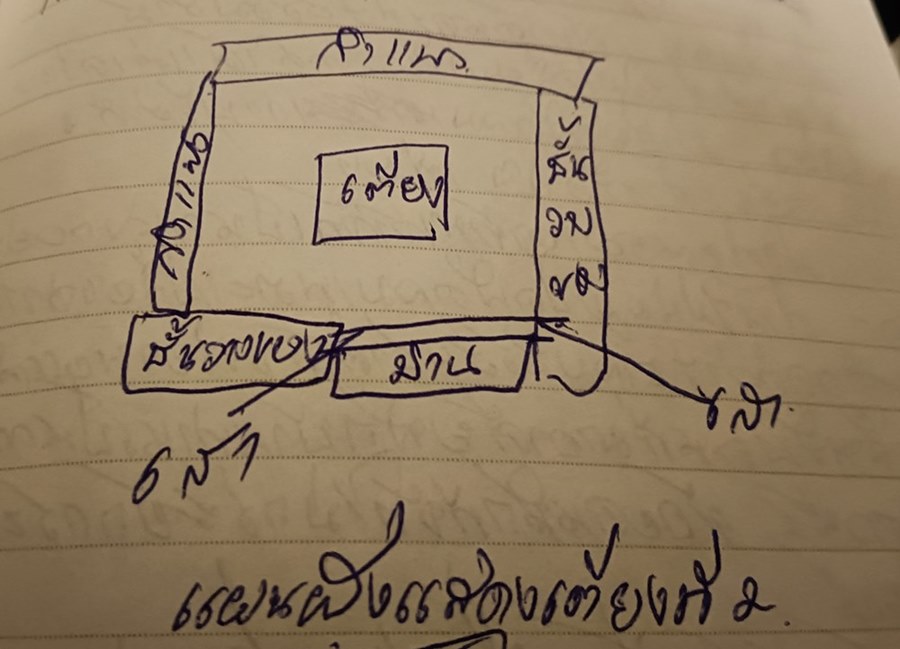 กำแพง
กำแพง
เตียง
ชั้น
วาง
ของ
ชั้นวางของ
ม่าน
เสา
เสา
แผนผังแสดงเตียงที่ 2